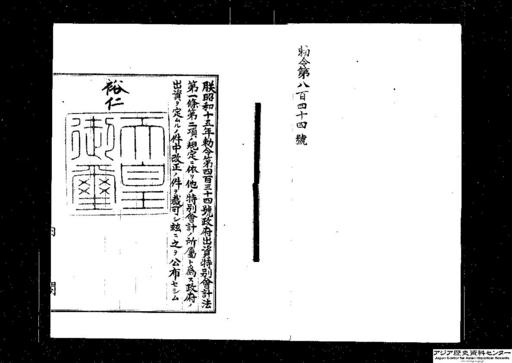 勅令第八百四十四號
朕昭和十五年勅令第四百三十四號政府出資特別會計法
第一條第二項ノ規定ニ依リ他ノ特別會計ノ所屬ト爲ス政府ノ
出資ヲ定ムルノ件中改正ノ件ヲ裁可シ玆ニ之ヲ公布セシム
裕仁
天皇御璽
内閣
アジア歴史資料センター
Japan Center for Asian Historical Records